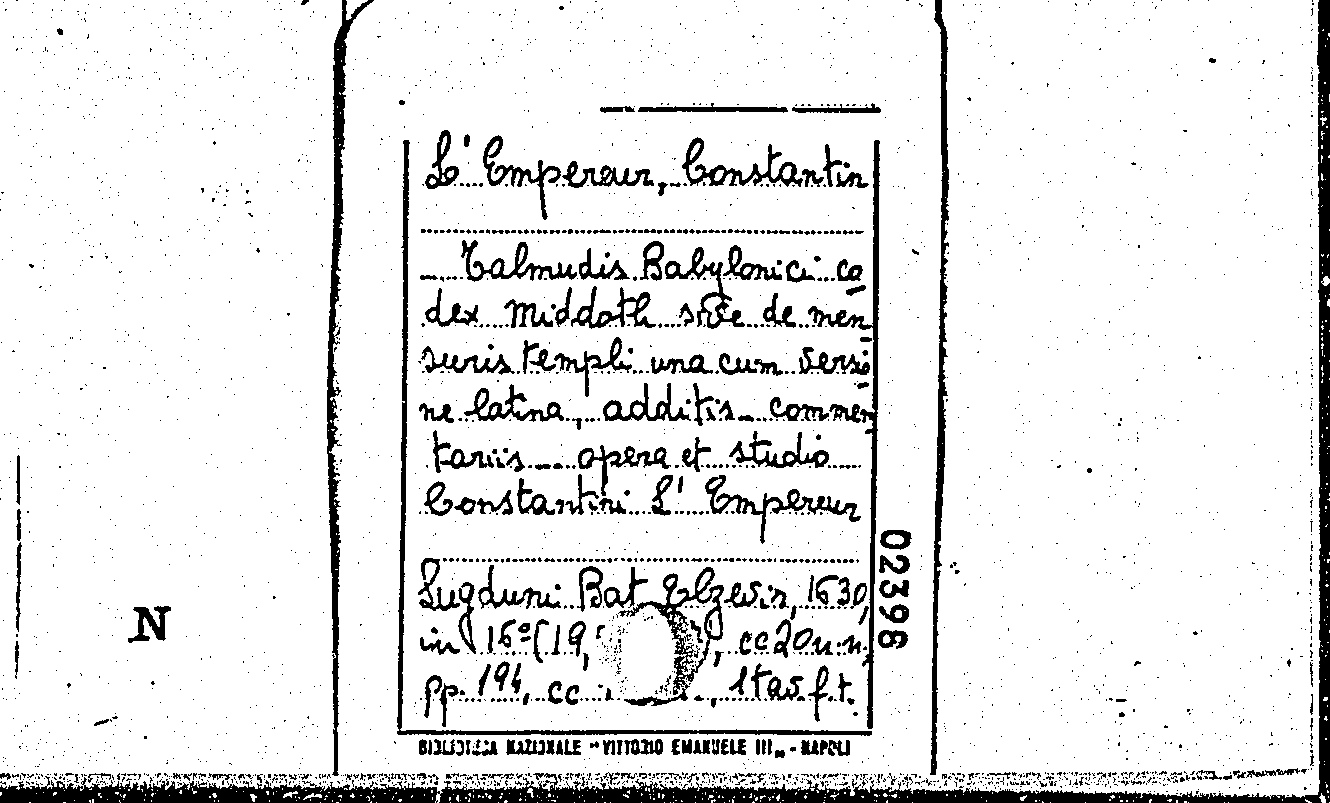 L' Empereur, Constantin
Talmudis Babylonici co
dex Middoth sive de men
suris templi una cum versi
ne latina, additis commen
tariis opera et studio
Constantini L' Empereur
Lugduni Bat Elzevir, 1630,
in 16º (19, cc 20 n.n.
pp. 194, cc 1 tav. f.t.
02398
N
BIBLIOTECA NAZIONALE "VITTORIO EMANUELE III" - NAPOLI